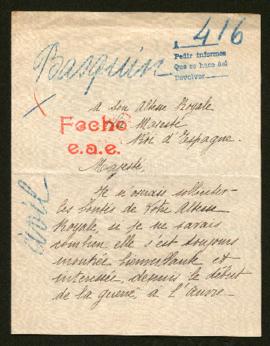 416
Pedir informes
Que se hace así
Devolver
Basquin
A Son Altesse Royale
Sa Majesté
Roi d'Espagne.
Fecho
e.a.e.
Majesté,
Je n'oserais solliciter
les bontés de Votre Altesse
Royale, si je ne savais
combien elle s'est toujours
montrée bienveillante et
intéressée, depuis le début
de la guerre, à l'œuvre
civil